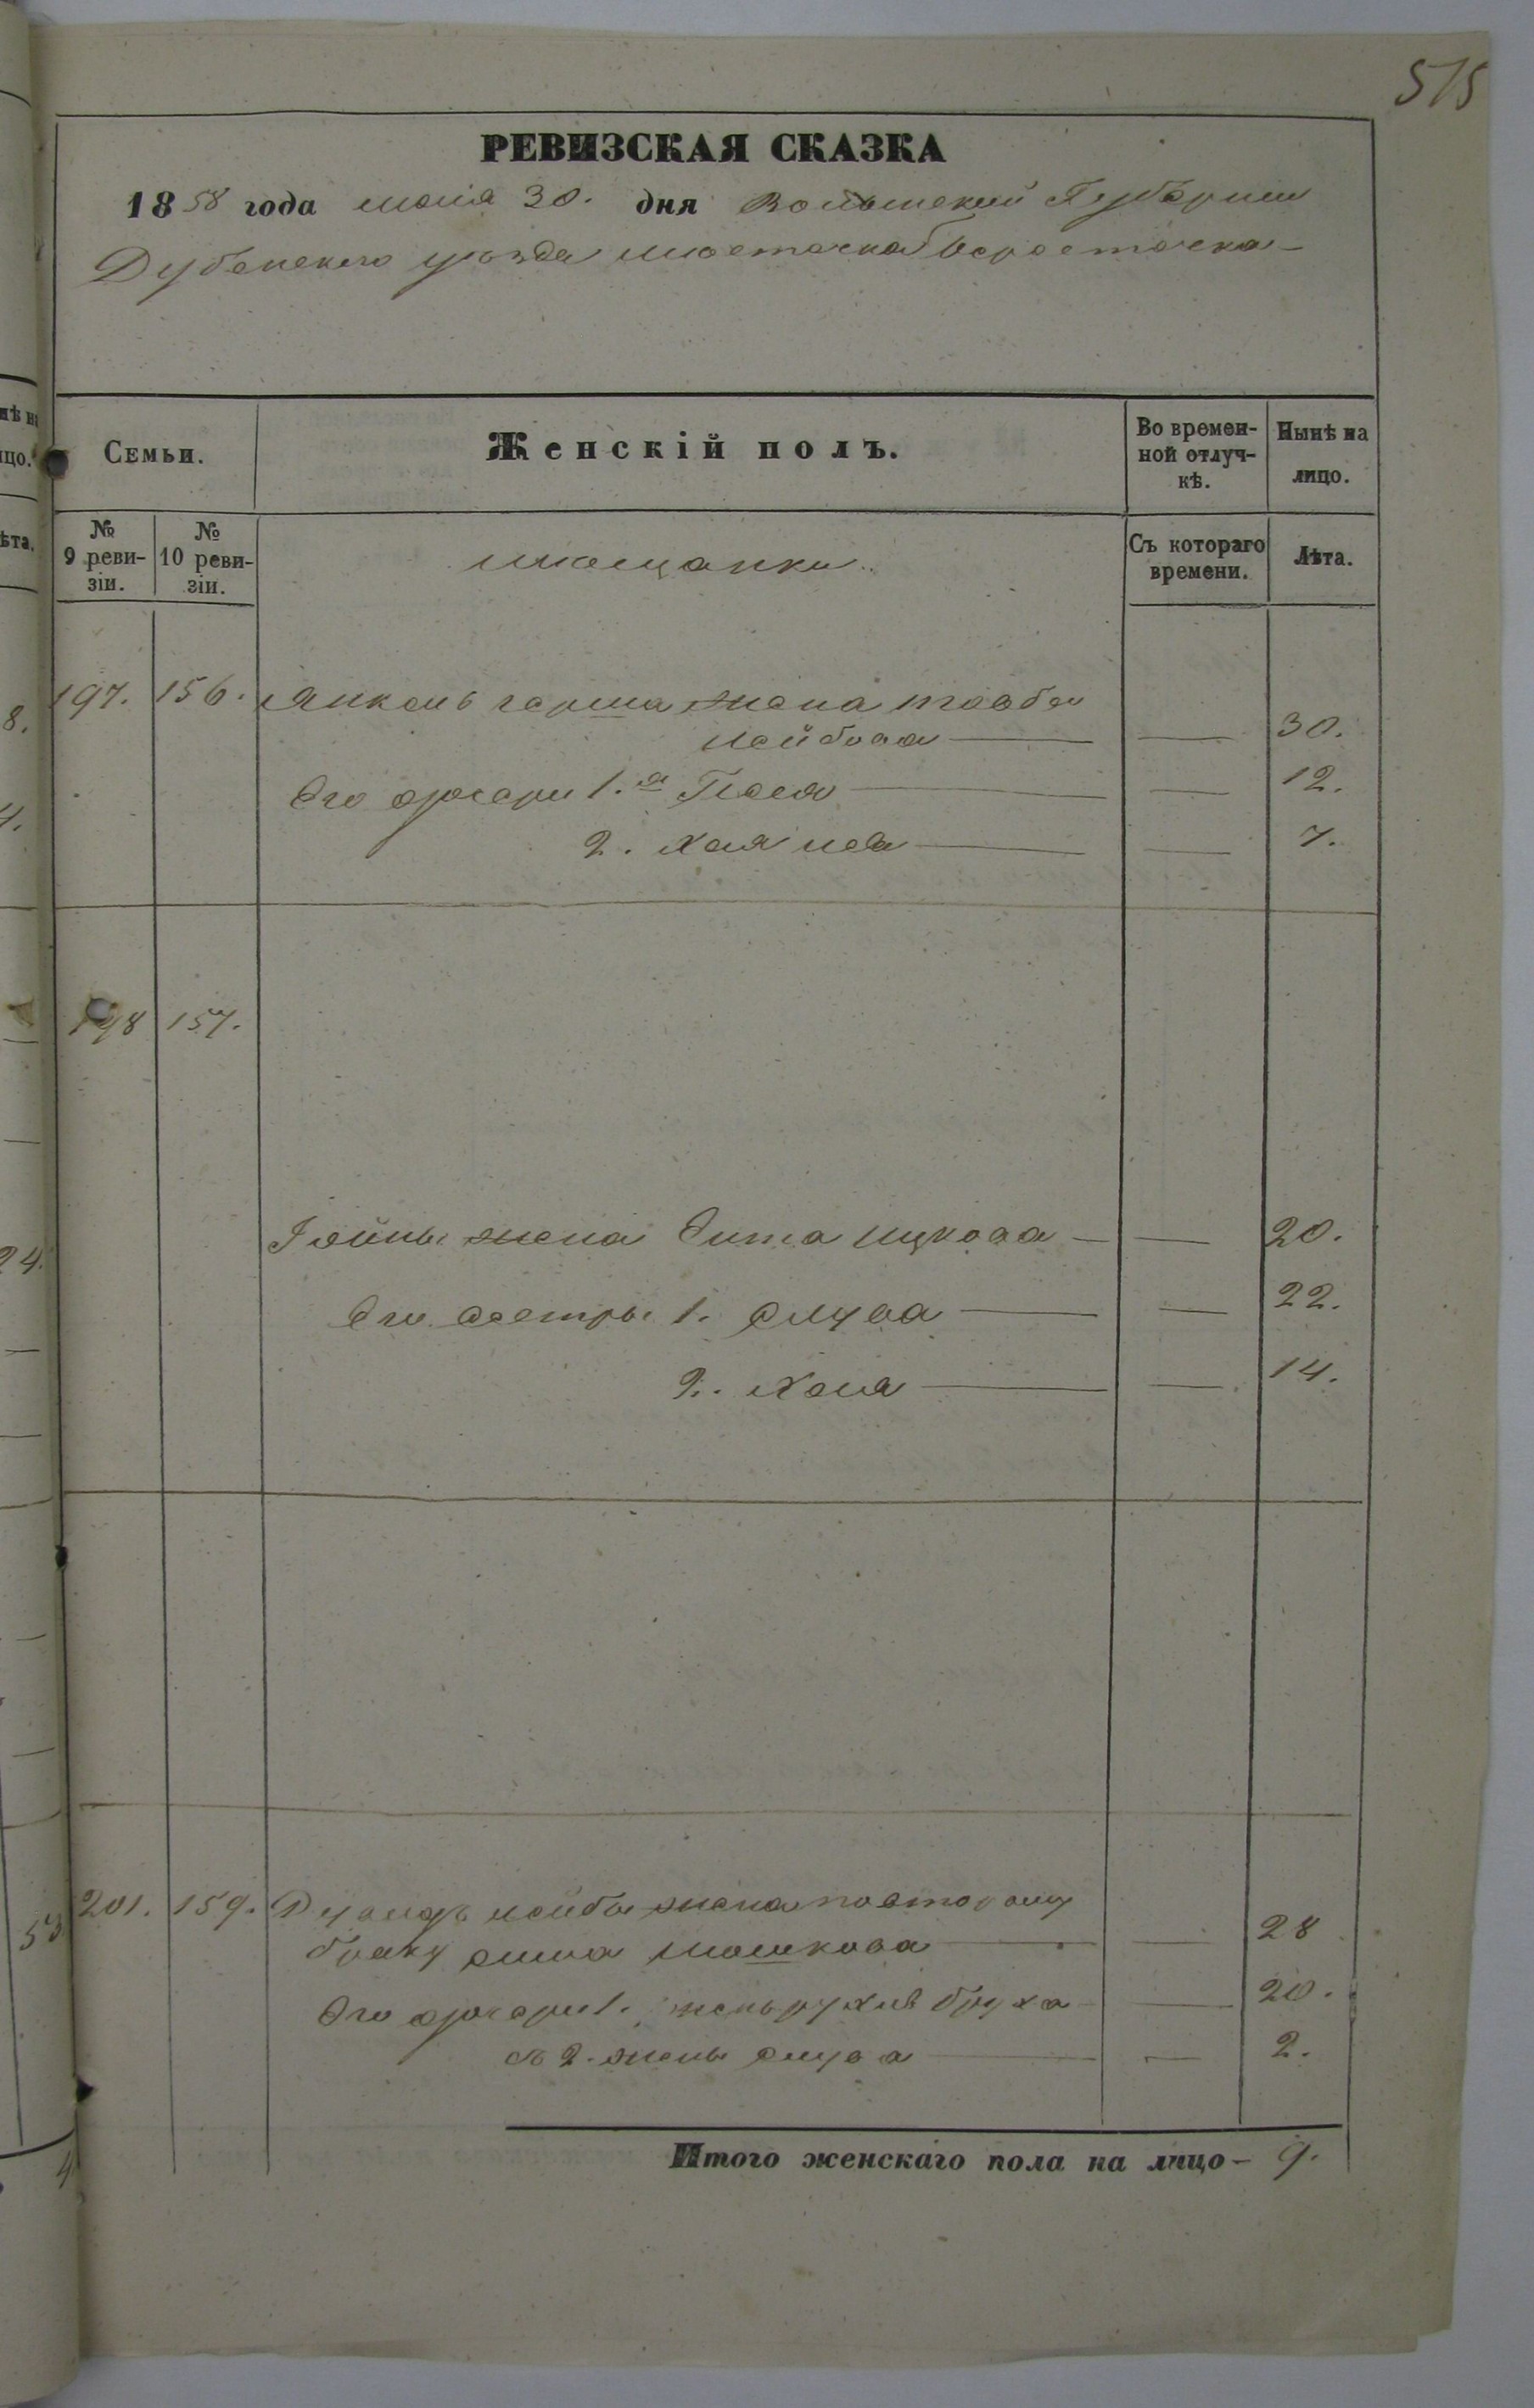 515
РЕВИЗСКАЯ СКАЗКА
1858 года маія 30. дня Волынской Губерніи
Дубенского уезда местечка Берестечка
Семьи.
Женскій полъ.
Во времен-
ной отлуч-
кѣ.
Нынѣ на
лицо.
№
9 реви-
зіи.
№
10 реви-
зіи.
мещанки
Съ котораго
времени.
Лѣта.
197. 156. Янкель герша жена тавба
лейбова — — 30.
Его дочери 1.я Песя — — 12.
2. Хая — — 7.
198 157.
жена Ента ицкова — — 20.
Его сестры 1. — — 22.
2. Хая — — 14.
201. 159. лейбы жена по второму
браку мошкова — — 28
Его дочери 1. — 20.
2. жены — — 2.
Итого женскаго пола на лицо - 9.